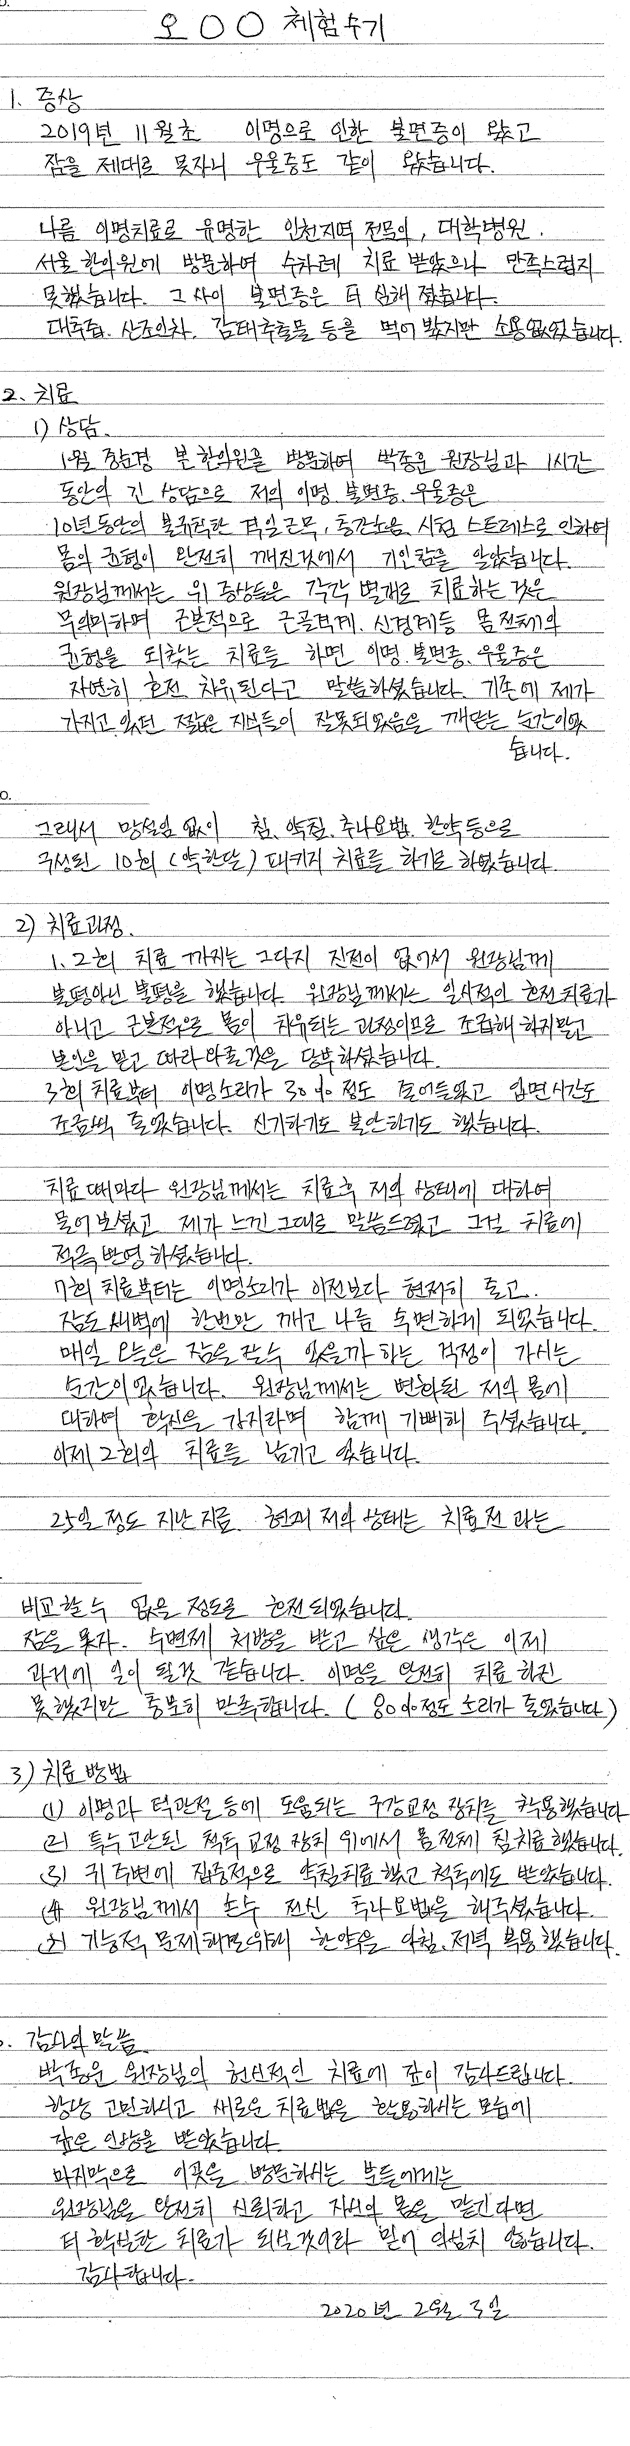 오○○ 체험수기
1. 증상
2019년 11월초 이명으로 인한 불면증이 왔고
잠을 제대로 못자니 우울증도 같이 왔습니다.
나름 이명치료로 유명한 인천지역 전문의, 대학병원.
서울 한의원에 방문하여 수차례 치료 받았으나 만족스럽지
못했습니다. 그 사이 불면증은 더 심해 졌습니다.
대추즙. 산조인차. 감태추출물 등을 먹어 봤지만 소용없었습니다.
2. 치료
1) 상담.
1월 중순경 본 한의원을 방문하여 박종운 원장님과 1시간
동안의 긴 상담으로 저의 이명. 불면증. 우울증은
10여년동안의 불규칙한 격일근무, 층간소음. 시험 스트레스로 인하여
몸의 균형이 완전히 깨진것에서 기인함을 알았습니다.
원장님께서는 위 증상들은 각각 별개로 치료하는 것은
무의미하며 근본적으로 근골격계. 신경계등 몸 전체의
균형을 되찾는 치료를 하면 이명. 불면증. 우울증은
자연히 호전 치유된다고 말씀하셨습니다. 기존에 제가
가지고 있던 짧은 지식들이 잘못되었음을 깨닫는 순간이었
습니다.
그래서 망설임 없이 침. 약침. 추나요법. 한약등으로
구성된 10회 (약한달) 패키지 치료를 하기로 하였습니다.
2) 치료과정.
1. 2회 치료 까지는 그다지 진전이 없어서 원장님께
불평아닌 불평을 했습니다. 원장님께서는 일시적인 호전치료가
아니고 근본적으로 몸이 치유되는 과정이므로 조급해 하지말고
본인을 믿고 따라와줄것을 당부하셨습니다.
3회 치료부터 이명소리가 30%정도 줄어들었고 입면시간도
조금씩 줄었습니다. 신기하기도 불안하기도 했습니다.
치료때마다 원장님께서는 치료후 저의 상태에 대하여
물어보셨고 제가 느낀 그대로 말씀드렸고 그걸 치료에
적극 반영 하셨습니다.
7회 치료부터는 이명소리가 이전보다 현저히 줄고.
잠도 새벽에 한번만 깨고 나름 숙면하게 되었습니다.
매일 오늘은 잠을 잘수 있을까 하는 걱정이 가시는
순간이었습니다. 원장님께서는 변화된 저의 몸에
대하여 확신을 가지라며 함께 기뻐해 주셨습니다.
이제 2회의 치료를 남기고 있습니다.
25일 정도 지난 지금. 현재 저의 상태는 치료전 과는
비교할 수 없을 정도로 호전되었습니다.
잠을 못자. 수면제 처방을 받고 싶은 생각은 이제
과거에 일이 될것 같습니다. 이명을 완전히 치료 하진
못했지만 충분히 만족합니다. ( 80%정도 소리가 줄었습니다)
3) 치료 방법
(1) 이명과 턱관절 등에 도움되는 구강교정 장치를 착용했습니다
(2) 특수 고안된 척추 교정 장치 위에서 몸전체 침치료했습니다.
(3) 귀 주변에 집중적으로 약침치료 했고 척추에도 받았습니다.
(4) 원장님께서 손수 전신 추나요법을 해주셨습니다.
(5) 기능적 문제해결위해 한약을 아침. 저녁 복용했습니다.
. 감사의 말씀.
박종운 원장님의 헌신적인 치료에 깊이 감사드립니다.
항상 고민하시고 새로운 치료법을 활용하시는 모습에
깊은 인상을 받았습니다.
마지막으로 이곳을 방문하시는 분들에게는
원장님을 완전히 신뢰하고 자신의 몸을 맡긴다면
더 확실한 치료가 되실것이라 믿어 의심치 않습니다.
감사합니다.
2020년 2월 3일